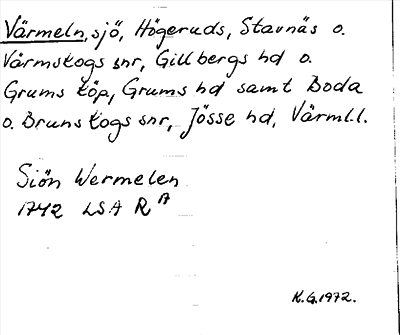 Värmeln, sjö, Högeruds, Stavnäs o.
Värmskogs snr, Gillbergs hd o.
Grums köp, Grums hd samt Boda
o. Brunskogs snr, Jösse hd, Värml.l.
Siön Wermelen
1742 LSA R A
K.G.1972.